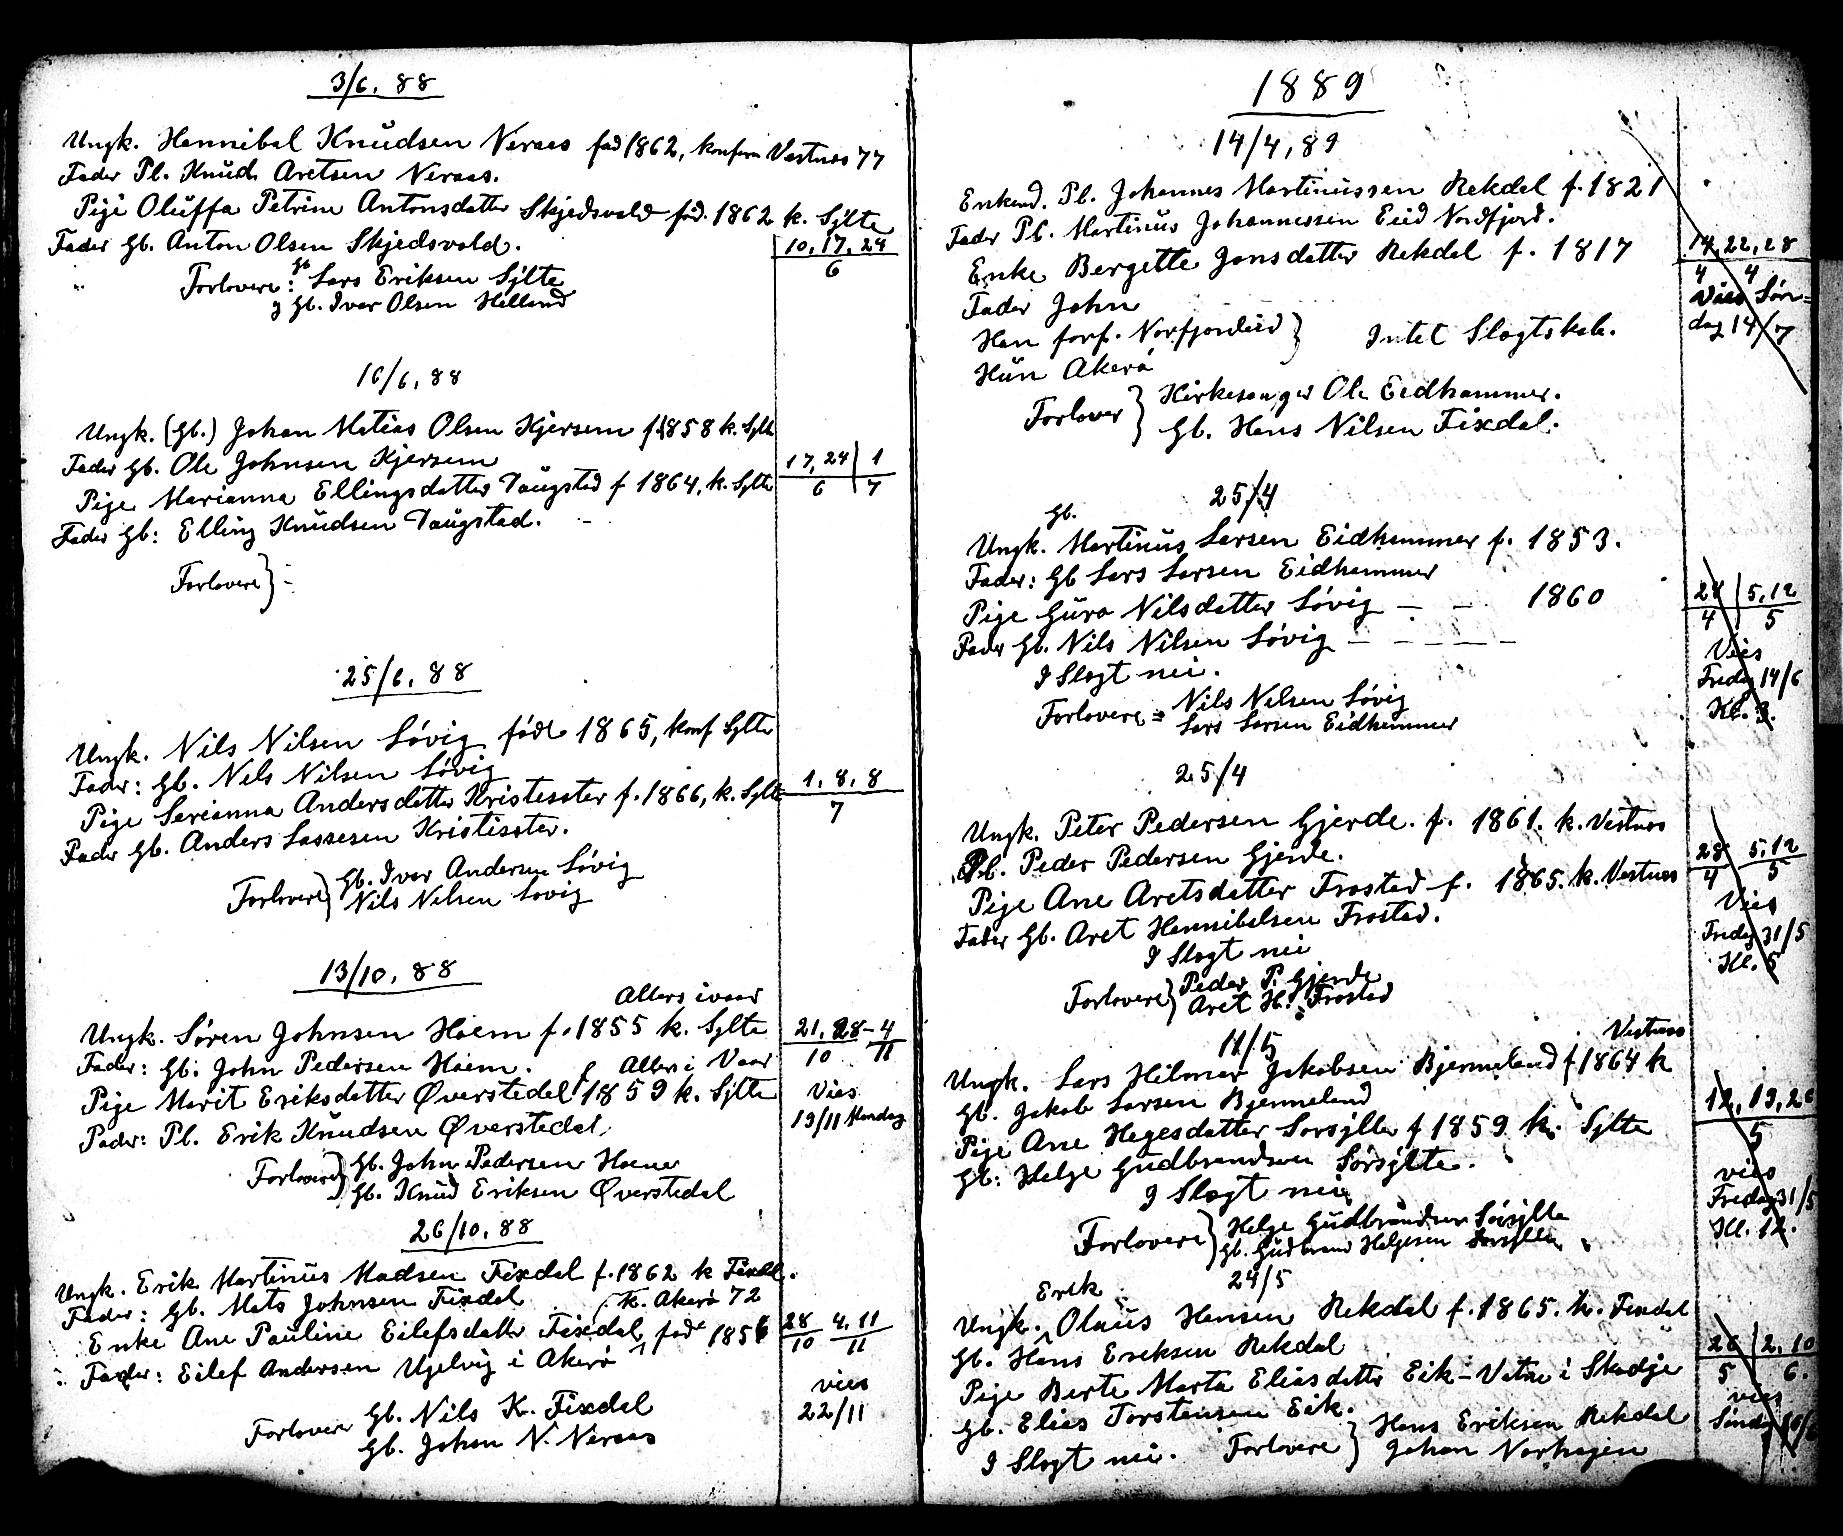 3/6, 88
Ungk. Hannibal Knudsen Neraas fød 1862, konfirm Vestnes 77
Fader Pl. Knud Aretsen Neraas.
Pige Oluffa Petrine Antonsdatter Skjedsvold fød. 1862 k. Sylte
Fader Gb. Anton Olsen Skjedsvold.
10, 17, 24
6
Forlovere: Gb Lars Eriksen Sylte
g Gb. Ivar Olsen Helland
16/6, 88
Ungk. (Gb.) Johan Matias Olsen Kjersem f 1858 k. Sylte
Fader Gb. Ole Johnsen Kjersem
Pige Marianna Ellingsdatter Daugstad f 1864, k. Sylte
17, 24 | 1
6 | 7
Fader Gb: Elling Knudsen Daugstad. -
Forlovere } -
25/6, 88
Ungk. Nils Nilsen Løvig født 1865, konf Sylte
Fader: Gb. Nils Nilsen Løvig
Pige Serianna Andersdatter Kristisæter f. 1866, k. Sylte
1, 8, 8
7
Fader Gb. Anders Lassesen Kristisæter.
Forlovere } Gb. Ivar Andersen Løvig
Nils Nilsen Løvig
13/10, 88
Allers ivaar
Ungk. Søren Johnsen Hoem f. 1855 k. Sylte
21, 28 - 4
10 11
Fader: Gb. John Pedersen Hoem.
Allers i Vaar
Pige Marit Eriksdatter Øverstedal f 1859 k. Sylte
Vies
19/11 Mandag
Fader: Pl. Erik Knudsen Øverstedal.
Forlovere } Gb. John Pedersen Hoem
Gb. Knud Eriksen Øverstedal
26/10, 88
Ungk. Erik Martinus Madsen Fixdal f. 1862 k Fixdal.
Fader: Gb. Mats Johnsen Fixdal
k. Akerø 72
Enke Ane Pauline Eilefsdatter Fixdal, født 1856
28 4, 11
10 11
Fader: Eilef Andersen Ugelvig i Akerø
vies
22/11
Forlovere Gb. Nils K. Fixdal
Gb. Johan N. Neraas
1889
14/4, 89
Enkend. Pl. Johannes Martinussen Rekdal f. 1821
Fader Pl. Martinus Johannessen Eid Nordfjord.
Enke Bergette Jonsdatter Rekdal f. 1817
14, 22, 28
4 4
Fader John
Vies Søn=
dag 14/7
Han forf. Norfjordeid }
Hun Akerø
Intet Slægtskab.
Forlover } Kirkesanger Ole Eidhammer.
Gb. Hans Nilsen Fixdal.
25/4
Gb.
Ungk. Martinus Larsen Eidhammer f. 1853.
Fader: Gb Lars Larsen Eidhammer
Pige Guro Nilsdatter Løvig - - 1860
28 | 5, 12
4 | 5
Fader Gb. Nils Nilsen Løvig - - - -
Vies
Fredag 14/6
Kl. 3.
I Slægt nei.
Forlovere = Nils Nilsen Løvig
Lars Larsen Eidhammer
25/4
Ungk. Peter Pedersen Gjerde. f. 1861. k. Vestnes
Pl. Peder Pedersen Gjerde.
Pige Ane Aretsdatter Frostad f. 1865. k. Vestnes
28 5, 12
4 5
Fader Gb. Aret Hannibalsen Frostad.
Vies
Fredag 31/5
Kl. 5
I Slægt nei
Forlovere } Peder P. Gjerde
Aret H. Frostad
11/5
Vestnes
Ungk. Lars Hilmar Jakobsen Bjermeland f 1864 k
Gb. Jakob Larsen Bjermeland
Pige Ane Helgesdatter Sørsylte f 1859 k. Sylte
12, 19, 26
5
Gb: Helge Gudbrandsen Sørsylte.
vies
Fredag 31/5
Kl. 12.
I Slægt nei
Forlovere } Helge Gudbrandsen Sørsylte
Gb. Gudbrand Helgesen Sørsylte
24/5
Erik
Ungk. Olaus Hansen Rekdal f. 1865. k. Fixdal
Gb. Hans Eriksen Rekdal
Pige Berte Marta Eliasdatter Eik - Vatne i Skodje
26 | 2, 10
5 6.
Gb. Elias Torstensen Eik.
vies
Søndag
I Slægt nei. Forlovere } Hans Eriksen Rekdal
Johan Norhagen